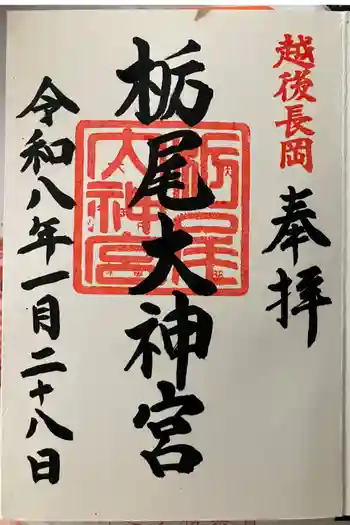 越後長岡
奉拝
栃尾大神宮
栃尾大神宮
令和八年一月二十八日